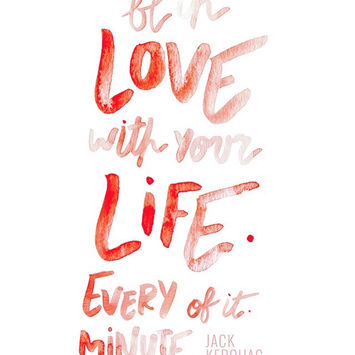 be in
LOVE
with your
LiFE.
EVERY of it.
MiNUTE
JACK
KEROUAC